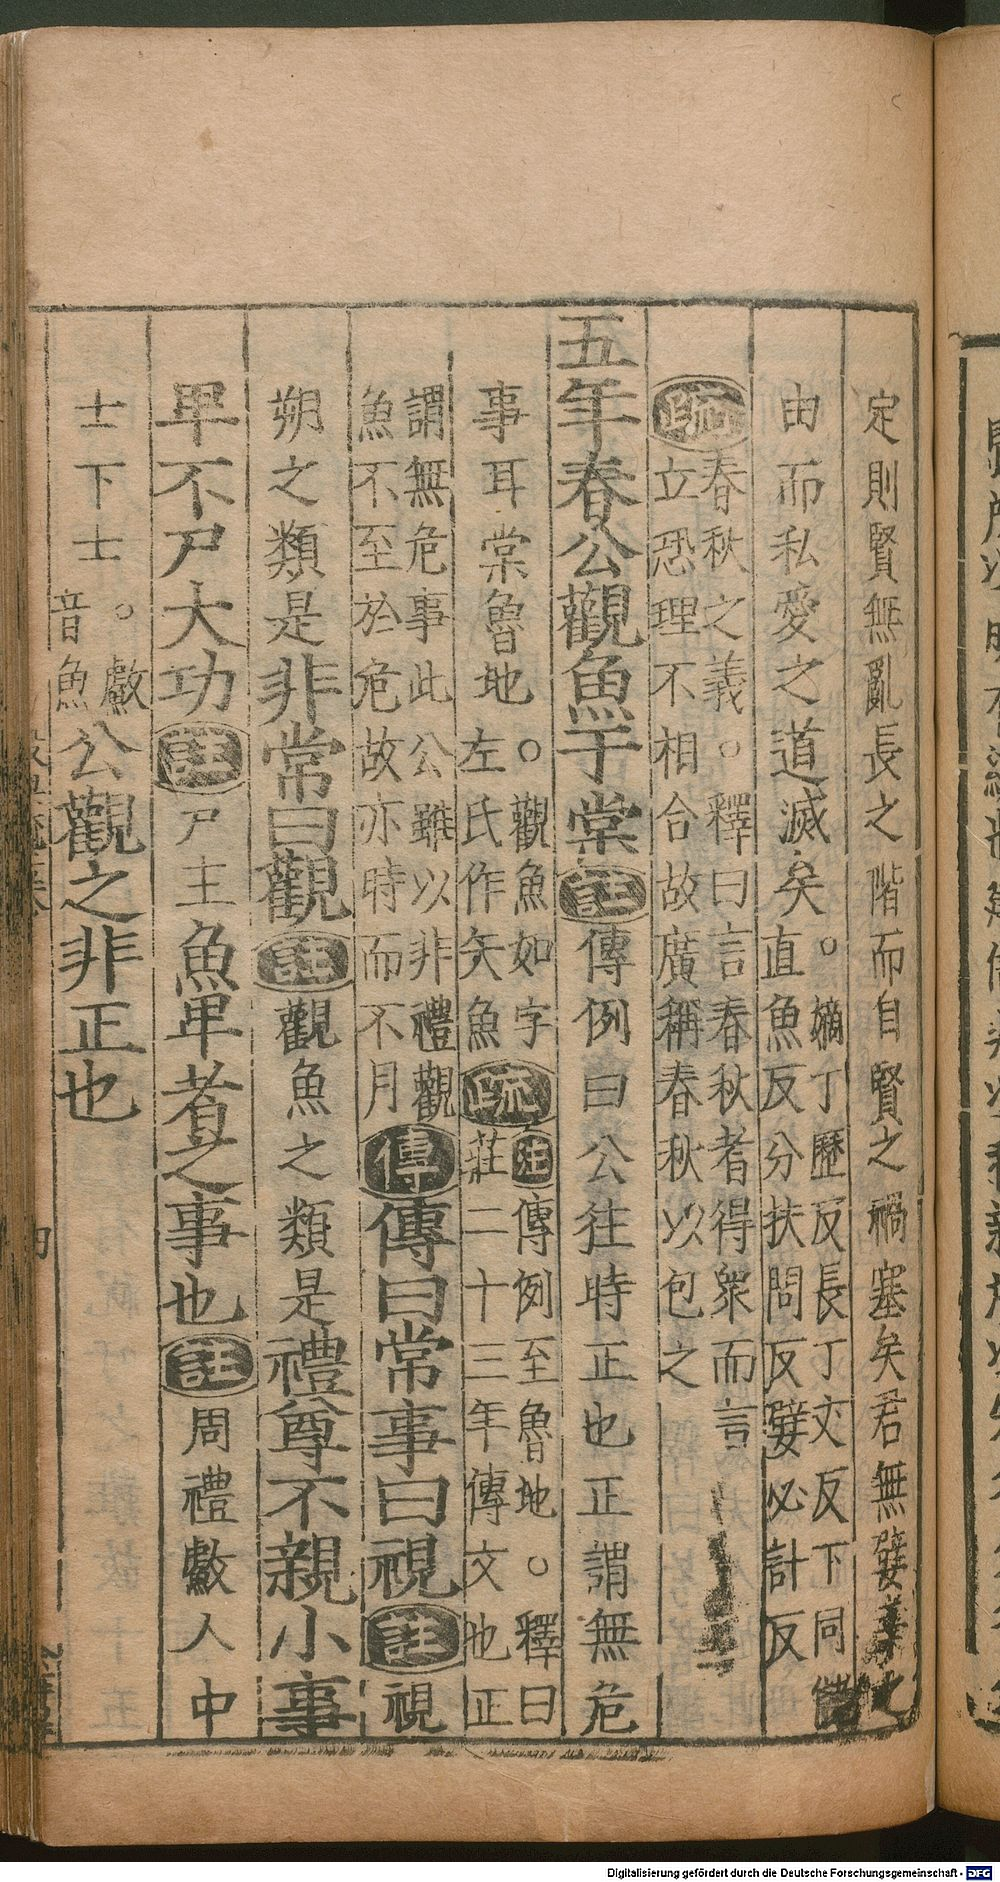 定則賢無亂長之階而自賢之禍塞矣君無嬖
由而私愛之道滅矣。嫡丁歷反長丁丈反下同
直魚反分扶問反嬖必計反
疏春秋之義。釋曰言春秋者得衆而言
立恐理不相合故廣稱春秋以包之
五年春公觀魚于棠註傳例曰公往時正也正謂無危
事耳棠魯地。觀魚如字
左氏作矢魚疏注傳例至魯地。釋曰
莊二十三年傳文也正
謂無危事此公雖以非禮觀
魚不至於危故亦時而不月傳傳曰常事曰視註視
朔之類是非常曰觀註觀魚之類是禮尊不親小事
卑不尸大功註尸主魚卑者之事也註周禮䱷人中
士下士。䱷
音魚公觀之非正也
Digitalisierung gefördert durch die Deutsche Forschungsgemeinschaft - DFG